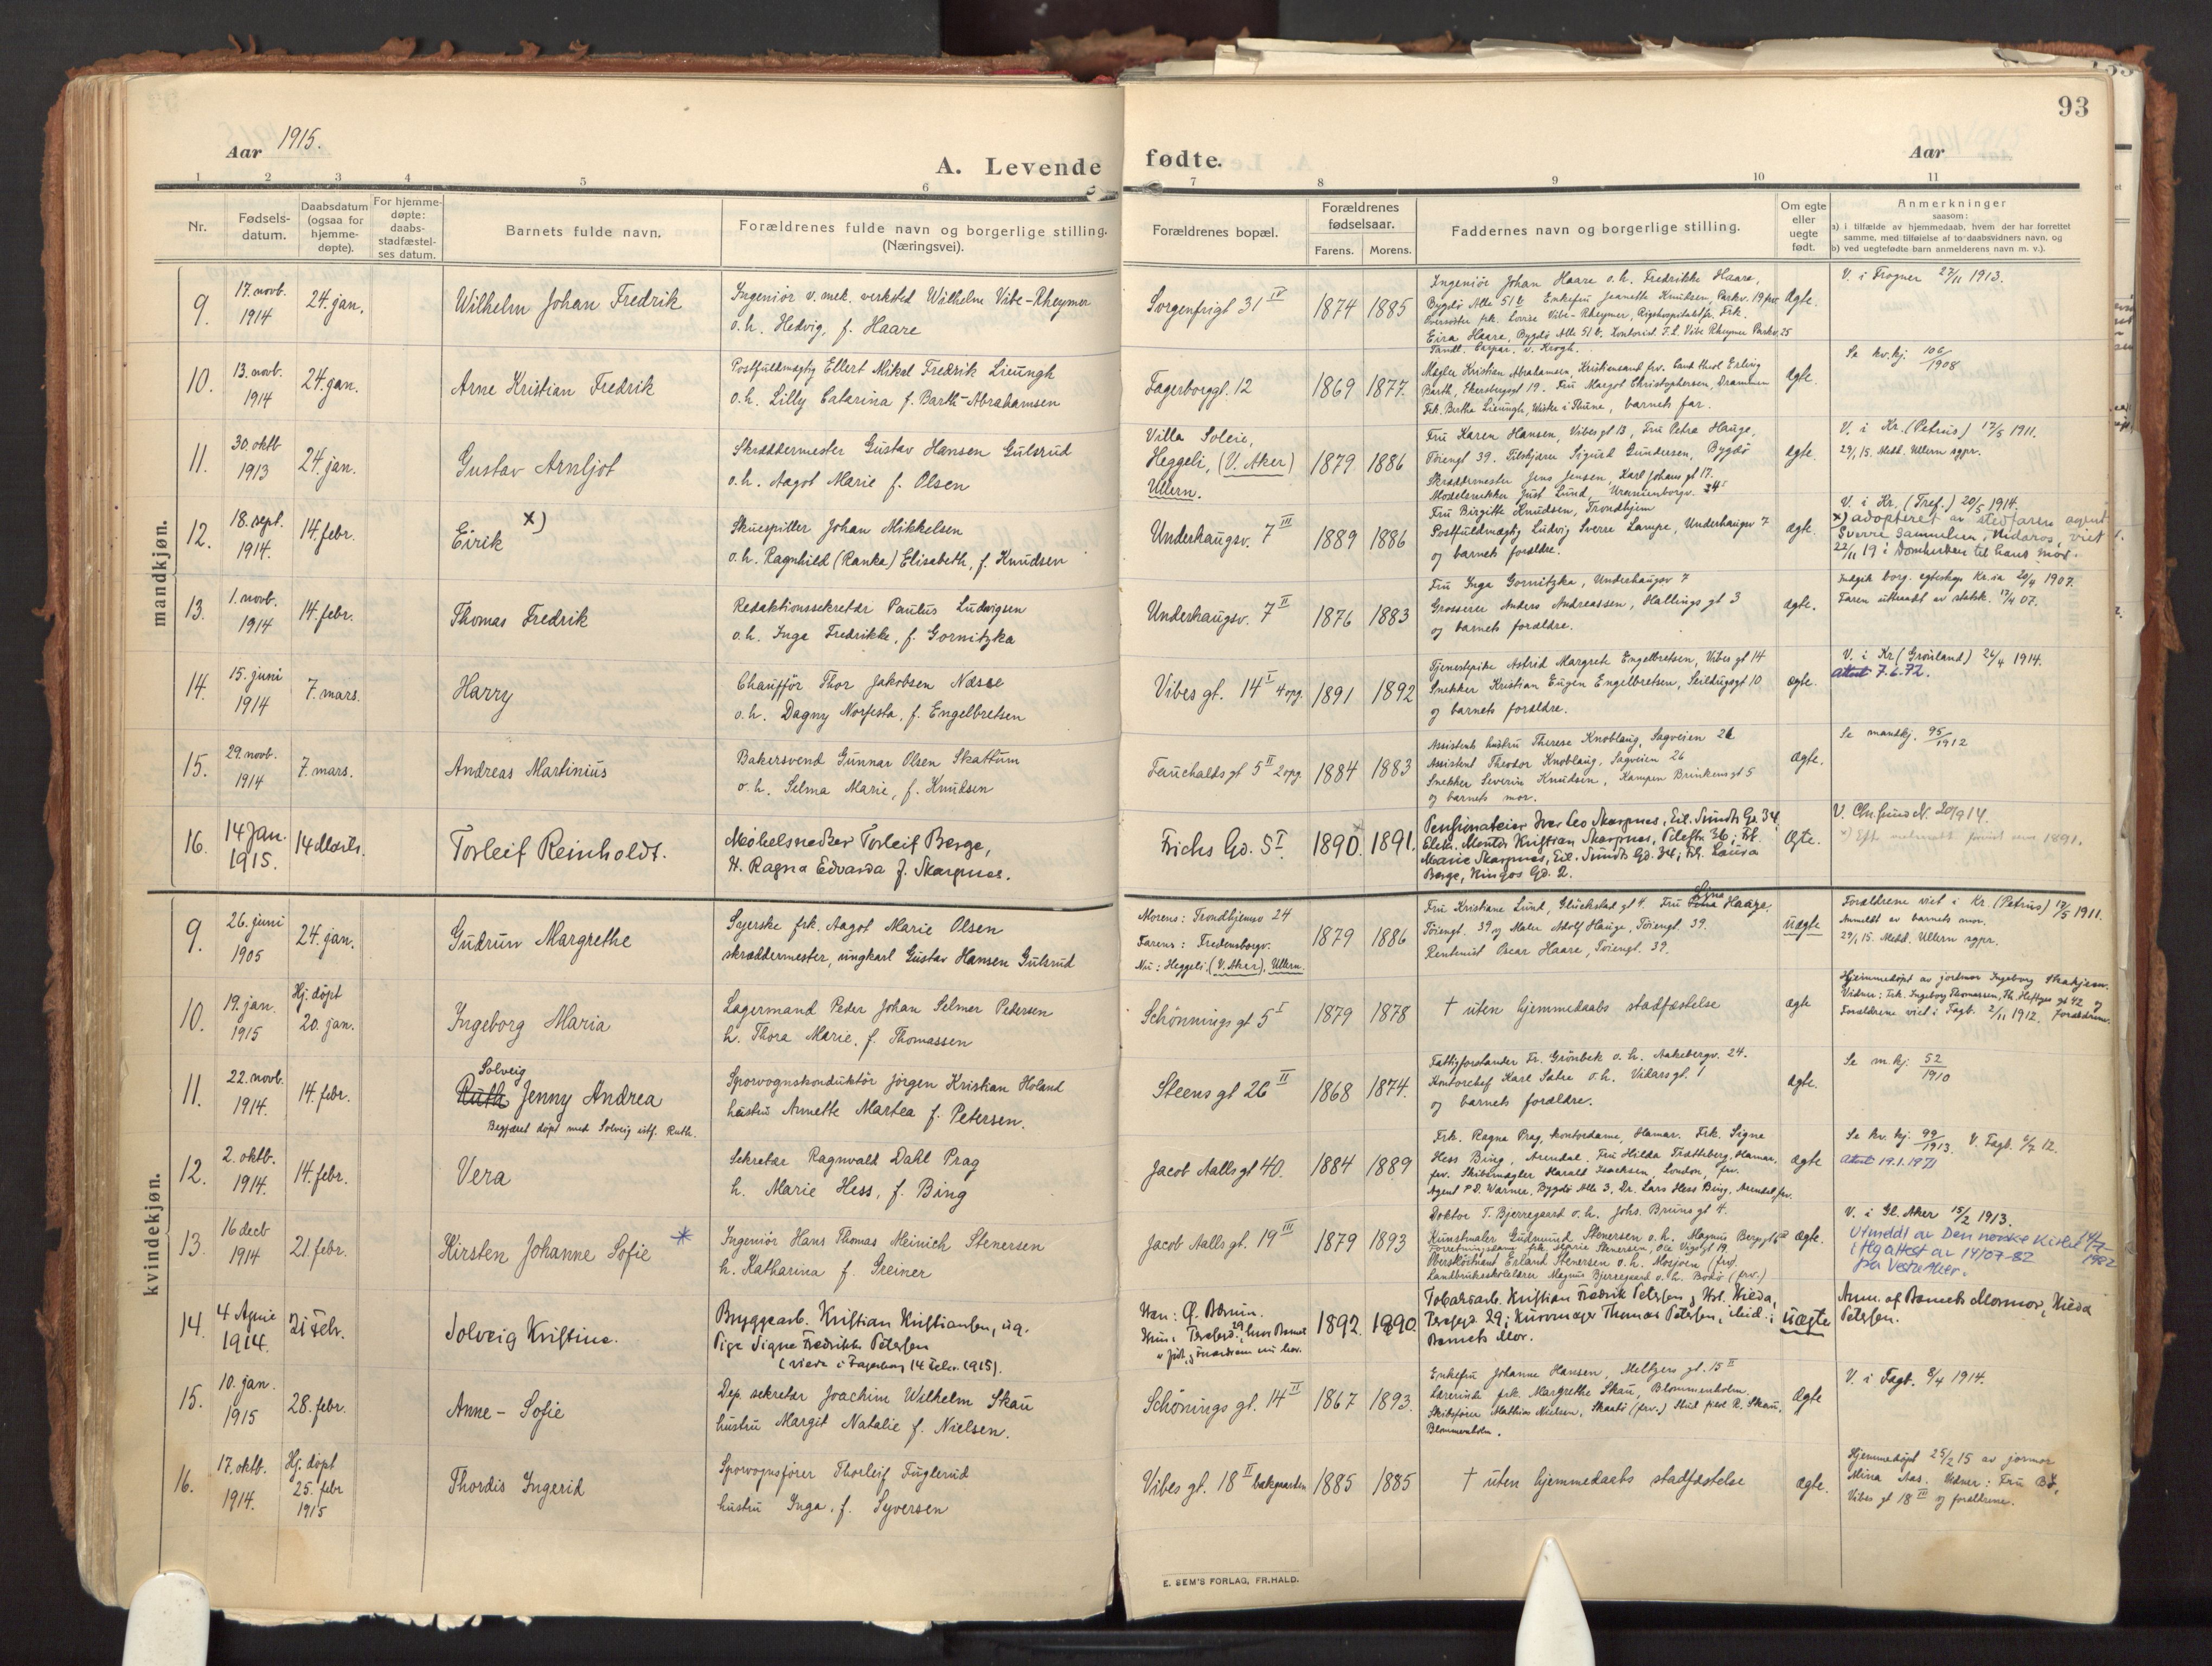 93
Aar 1915.
A. Levende fødte.
Aar
1 2 3 4 5 6 7 8 9 10 11
Nr.
Fødsels-
datum.
Daabsdatum
(ogsaa for
hjemme-
døpte).
For hjemme-
døpte:
daabs-
stadfæstel-
ses datum.
Barnets fulde navn.
Forældrenes fulde navn og borgerlige stilling.
(Næringsvei).
Forældrenes bopæl.
Forældrenes
fødselsaar.
Farens. Morens.
Faddernes navn og borgerlige stilling.
Om egte
eller
uegte
født.
Anmerkninger
saasom:
a) i tilfælde av hjemmedaab, hvem der har forrettet
samme, med tilføielse af to daabsvidners navn, og
b) ved uegtefødte barn anmelderens navn m. v.).
mandkjøn.
9.
17. novb.
1914
24. jan.
Wilhelm Johan Fredrik
Ingeniør v. mek. verksted Wilhelm Vibe-Rheymer
o.h. Hedvig, f. Haare
Sorgenfrigt 31 IV
1874 1885
Ingeniør Johan Haare o.h. Fredrikke Haare,
Bygdø Alle 51 b Enkefru Jeanette Knudsen, Parkv. 19
Oversøster frk. Lovise Vibe-Rheymer, Rigshospitalet frk.
Eira Haare, Bygdø Alle 51 b. Kontorist T. L. Vibe Rheymer Parkv. 25
Tandl. Caspar v. Krogh.
Ægte.
V. i Frogner 27/11 1913.
10.
13. novb.
1914
24. jan.
Arne Kristian Fredrik
Postfuldmægtig Ellert Mikal Fredrik Lieungh
o.h. Lilly Catarina f. Barth-Abrahamsen
Fagerborggt. 12
1869 1877.
Mægler Kristian Abrahamsen, Kristiansand frv. Cand theol Erling
Barth, Ekersbergt 19. Fru Margot Christophersen, Drammen
Frk. Bertha Lieungh, Wiske i Thune, barnets far.
Ægte.
Se kv.kj. 106/1908
11.
30. oktb
1913
24. jan.
Gustav Arnljot
Skræddermester Gustav Hansen Gulsrud
o.h. Aagot Marie f. Olsen
Villa Soleie,
Heggeli, (V. Aker)
Ullern.
1879 1886
Fru Karen Hansen, Vibes gt 13, Fru Petra Hauge,
Tøiengt 39. Sigurd Gundersen, Bygdø
Skræddermester Jens Jensen, Karl Johans gt 17.
Modelsnekker Just Lund, Uranienborgv. 34
ægte.
V. i Kr. (Petrus) 17/5 1911.
29/1 15. Medd. Ullern sgpr.
12.
18. sept.
1914.
14. febr.
Eirik x)
Skuespiller Johan Mikkelsen
o.h. Ragnhild (Ranka) Elisabeth, f. Knudsen
Underhaugsv. 7 III
1889 1886
Fru Birgitte Knudsen, Trondhjem
Postfuldmægtig Ludvig Sverre Lampe, Underhaugsv 7
og barnets forældre.
ægte.
V. i Kr. (Tref.) 20/5 1914.
x) adopteret av stedfaren agent
Sverre Samuelsen, Nidaros, viet
22/11 19 i Domkirken til hans mor.
13.
1. novb.
1914
14. febr.
Thomas Fredrik
Redaktionssekretær Paulus Ludvigsen
o.h. Inga Fredrikke, f. Gornitzka
Underhaugsv. 7 II
1876 1883
Fru Inga Gornitzka, Underhaugsv 7
Grosserer Anders Andreassen, Hallings gt 3
og barnets forældre.
ægte.
Indgik borg. egteskap Kr.ia 20/4 1907.
Faren uttraadt av statsk. 17/4 07.
14.
15. juni
1914
7. mars.
Harry
Chauffør Thor Jakobsen Næsse
o.h. Dagny Norfesta, f. Engelbretsen
Vibes gt. 14 I 4 opg.
1891 1892
Tjenestepike Astrid Margrete Engelbretsen, Vibes gt 14
Snekker Kristian Eugen Engelbretsen, Seildugsgt 10
og barnets forældre.
ægte.
V. i Kr (Grønland) 26/4 1914.
Attest 7.6.72.
15.
29. novb.
1914
7. mars.
Andreas Martinius
Bakersvend Gunnar Olsen Skattum
o.h. Selma Marie, f. Knudsen
Fauchalds gt 5 II 2 opg.
1884 1883
Assistents hustru Therese Knoblaug, Sagveien 26
Assistent Theodor Knoblaug, Sagveien 26
Snekker Severin Knudsen, Kampen Brinkens gt 5
og barnets mor.
ægte.
Se mandkj. 95/1912
16.
14 Jan.
1915.
14 Marts.
Torleif Reinholdt.
Møbelsnedker Torleif Berge,
H. Ragna Edvarda f. Skarpnes.
Frichs Gd. 5 I.
1890. 1891.
Pensionateier Iver Leo Skarpnes, Eil. Sundts Gd. 34,
Elektr. Montør Kristian Skarpnes, Pilestr. 36; Frk.
Marie Skarpnes, Eil. Sundts Gd. 34; Frk. Laura
Berge, Kingos Gd. 2.
Ægte.
V. 20/9 14.
kvindekjøn.
9.
26. juni
1905
24. jan.
Gudrun Margrethe
Syerske frk. Aagot Marie Olsen
skræddermester, ungkarl Gustav Hansen Gulsrud
Morens: Trondhjemsv 24
Farens: Fredensborgv.
Nu: Heggeli, (V. Aker), Ullern.
1879 1886
Fru Kristiane Lund, Glückstad gt 4. Fru Lina Hauge.
Tøiengt. 39 og Maler Adolf Hauge, Tøiengt. 39.
Rentenist Oscar Haare, Tøiengt. 39.
uægte
Forældrene viet i Kr. (Petrus) 17/5 1911.
Anmeldt av barnets mor.
29/1 15. Medd. Ullern sgpr.
10.
19. jan.
1915
Hj. døpt
20. jan.
Ingeborg Maria
Lagermand Peder Johan Selmer Pedersen
h. Thora Marie, f. Thomassen
Schönnings gt 5 I
1879 1878
† uten hjemmedaabs stadfæstelse
ægte
Hjemmedøpt av jordmor Ingeborg
Vidner: Frk. Ingeborg Thomassen, Th. Heftyes gt 42 og
Forældrene viet i Fagb. 2/11 1912. Forældrene.
11.
22. novb.
1914.
14. febr.
Solveig
Ruth Jenny Andrea
Begjæret døpt med Solveig istf. Ruth.
Sporvognskonduktør Jørgen Kristian Holand
hustru Annette Martea f. Petersen.
Steens gt 26 II
1868 1874.
Fattigforstander Fr. Grønbek o.h. Aakebergv. 24.
Kontorchef Karl Satre o.h. Vidars gt. 1
og barnets forældre.
ægte.
Se m.kj. 52/1910
12.
2. oktb.
1914.
14. febr.
Vera
Sekretær Ragnvald Dahl Prag
h. Marie Hess, f. Bing
Jacob Aalls gt 40.
1884 1889
Frk. Ragna Prag, kontordame, Hamar. Frk. Signe
Hess Bing, Arendal. Fru Hilda Trætteberg, Hamar,
frv. Skibsmægler Harald Isachsen, London, frv.
Agent P. D. Warner, Bygdø Alle 3, Dr. Lars Hess Bing, Arendal, frv.
ægte
Se kv. kj. 99/1913. V. Fagb. 6/7 12.
Attest 19.1.1971
13.
16 decb
1914
21. febr.
Kirsten Johanne Sofie *
Ingeniør Hans Thomas Meinich Stenersen
h. Katharina f. Greiner
Jacob Aalls gt. 19 III
1879 1893
Doktor T. Bjerregaard o.h. Johs. Bruns gt 4.
Kunstmaler Gudmund Stenersen o.h. Magnus Bergs gt
Forretningsdame frk. Marie Stenersen, Ole Vigs gt 19.
Oberstløitnant Erland Stenersen o.h. Mosjøen (frv)
Landbrukskolelærer Magnus Bjerregaard o.h. Bodø (frv.)
ægte.
V. i Gl. Aker 15/2 1913.
Utmeldt av Den norske kirke 14/7-1982
iflg attest av 14/07-82
fra Vestre Aker.
14.
4 April
1914.
21 Febr.
Solveig Kristine.
Bryggearb. Kristian Kristiansen, ug.
Pige Signe Fredrikke Petersen
(viede i Fagerborg 14 Febr. 1915).
1892. 1890.
Tobaksarb. Kristian Fredrik Petersen og Hst. Hilda,
29; Kurvmager Thomas Petersen, ibid.;
Barnets Mor.
uægte
Anm. af Barnets Mormor, Hilda
Petersen.
15.
10. jan.
1915
28. febr.
Anne-Sofie
Dep. sekretær Joachim Wilhelm Skau
hustru Margit Natalie f. Nielsen.
Schönings gt. 14 II
1867 1893.
Enkefru Johanne Hansen, Meltzers gt. 15 II
Lærerinde frk. Margrethe Skau, Blommenholm
Skibsfører Mathias Nielsen, Skaatø (frv.) Stud R. Skau,
Blommenholm.
Ægte
V. i Fagb. 8/4 1914.
16.
17. oktb.
1914.
Hj. døpt
25. febr
1915
Thordis Ingerid
Sporvognsfører Thorleif Fuglerud
hustru Inga, f. Syversen
Vibes gt. 18 II bakgaarden
1885 1885
† uten hjemmedaabs stadfæstelse
ægte.
Hjemmedøpt 25/2 15 av jormor
Mina Aas. Vidner: Fru Bø,
Vibes gt 18 III og forældrene.
E. SEM'S FORLAG, FR.HALD.